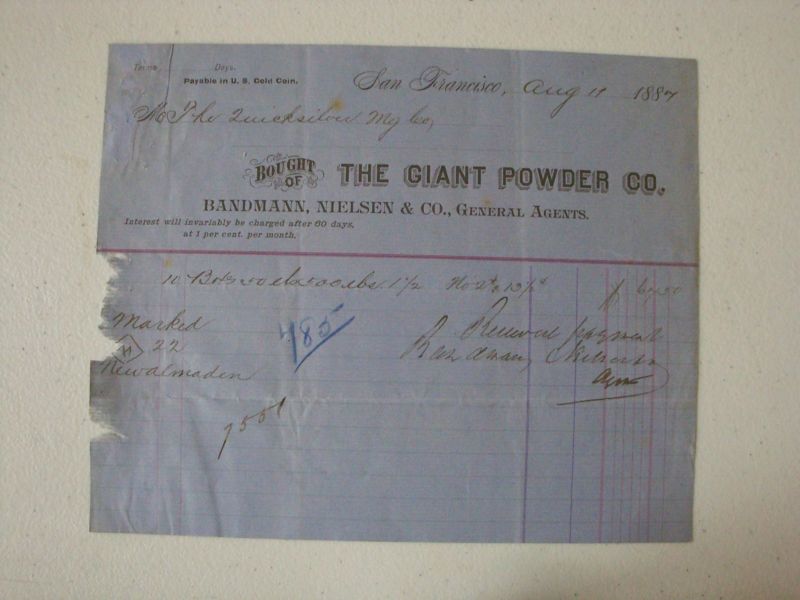 Terms Days.
Payable in U. S. Gold Coin.
San Francisco, Aug 11 1887
The Quicksilver Mg Co,
BOUGHT OF THE GIANT POWDER CO.
BANDMANN, NIELSEN & CO., GENERAL AGENTS.
Interest will invariably be charged after 60 days,
at 1 per cent. per month.
10 Bxs 50 ea 500 lbs. 1 1/2 No 2 13 1/2 $ 67.50
Marked
H 22
Newalmaden
485
Received payment
Bandmann Nielsen